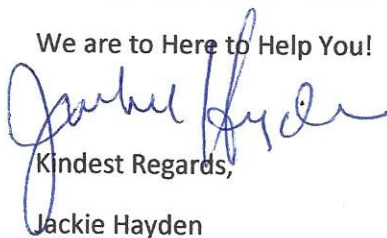 We are to Here to Help You!
Jackie Hayden
Kindest Regards,
Jackie Hayden